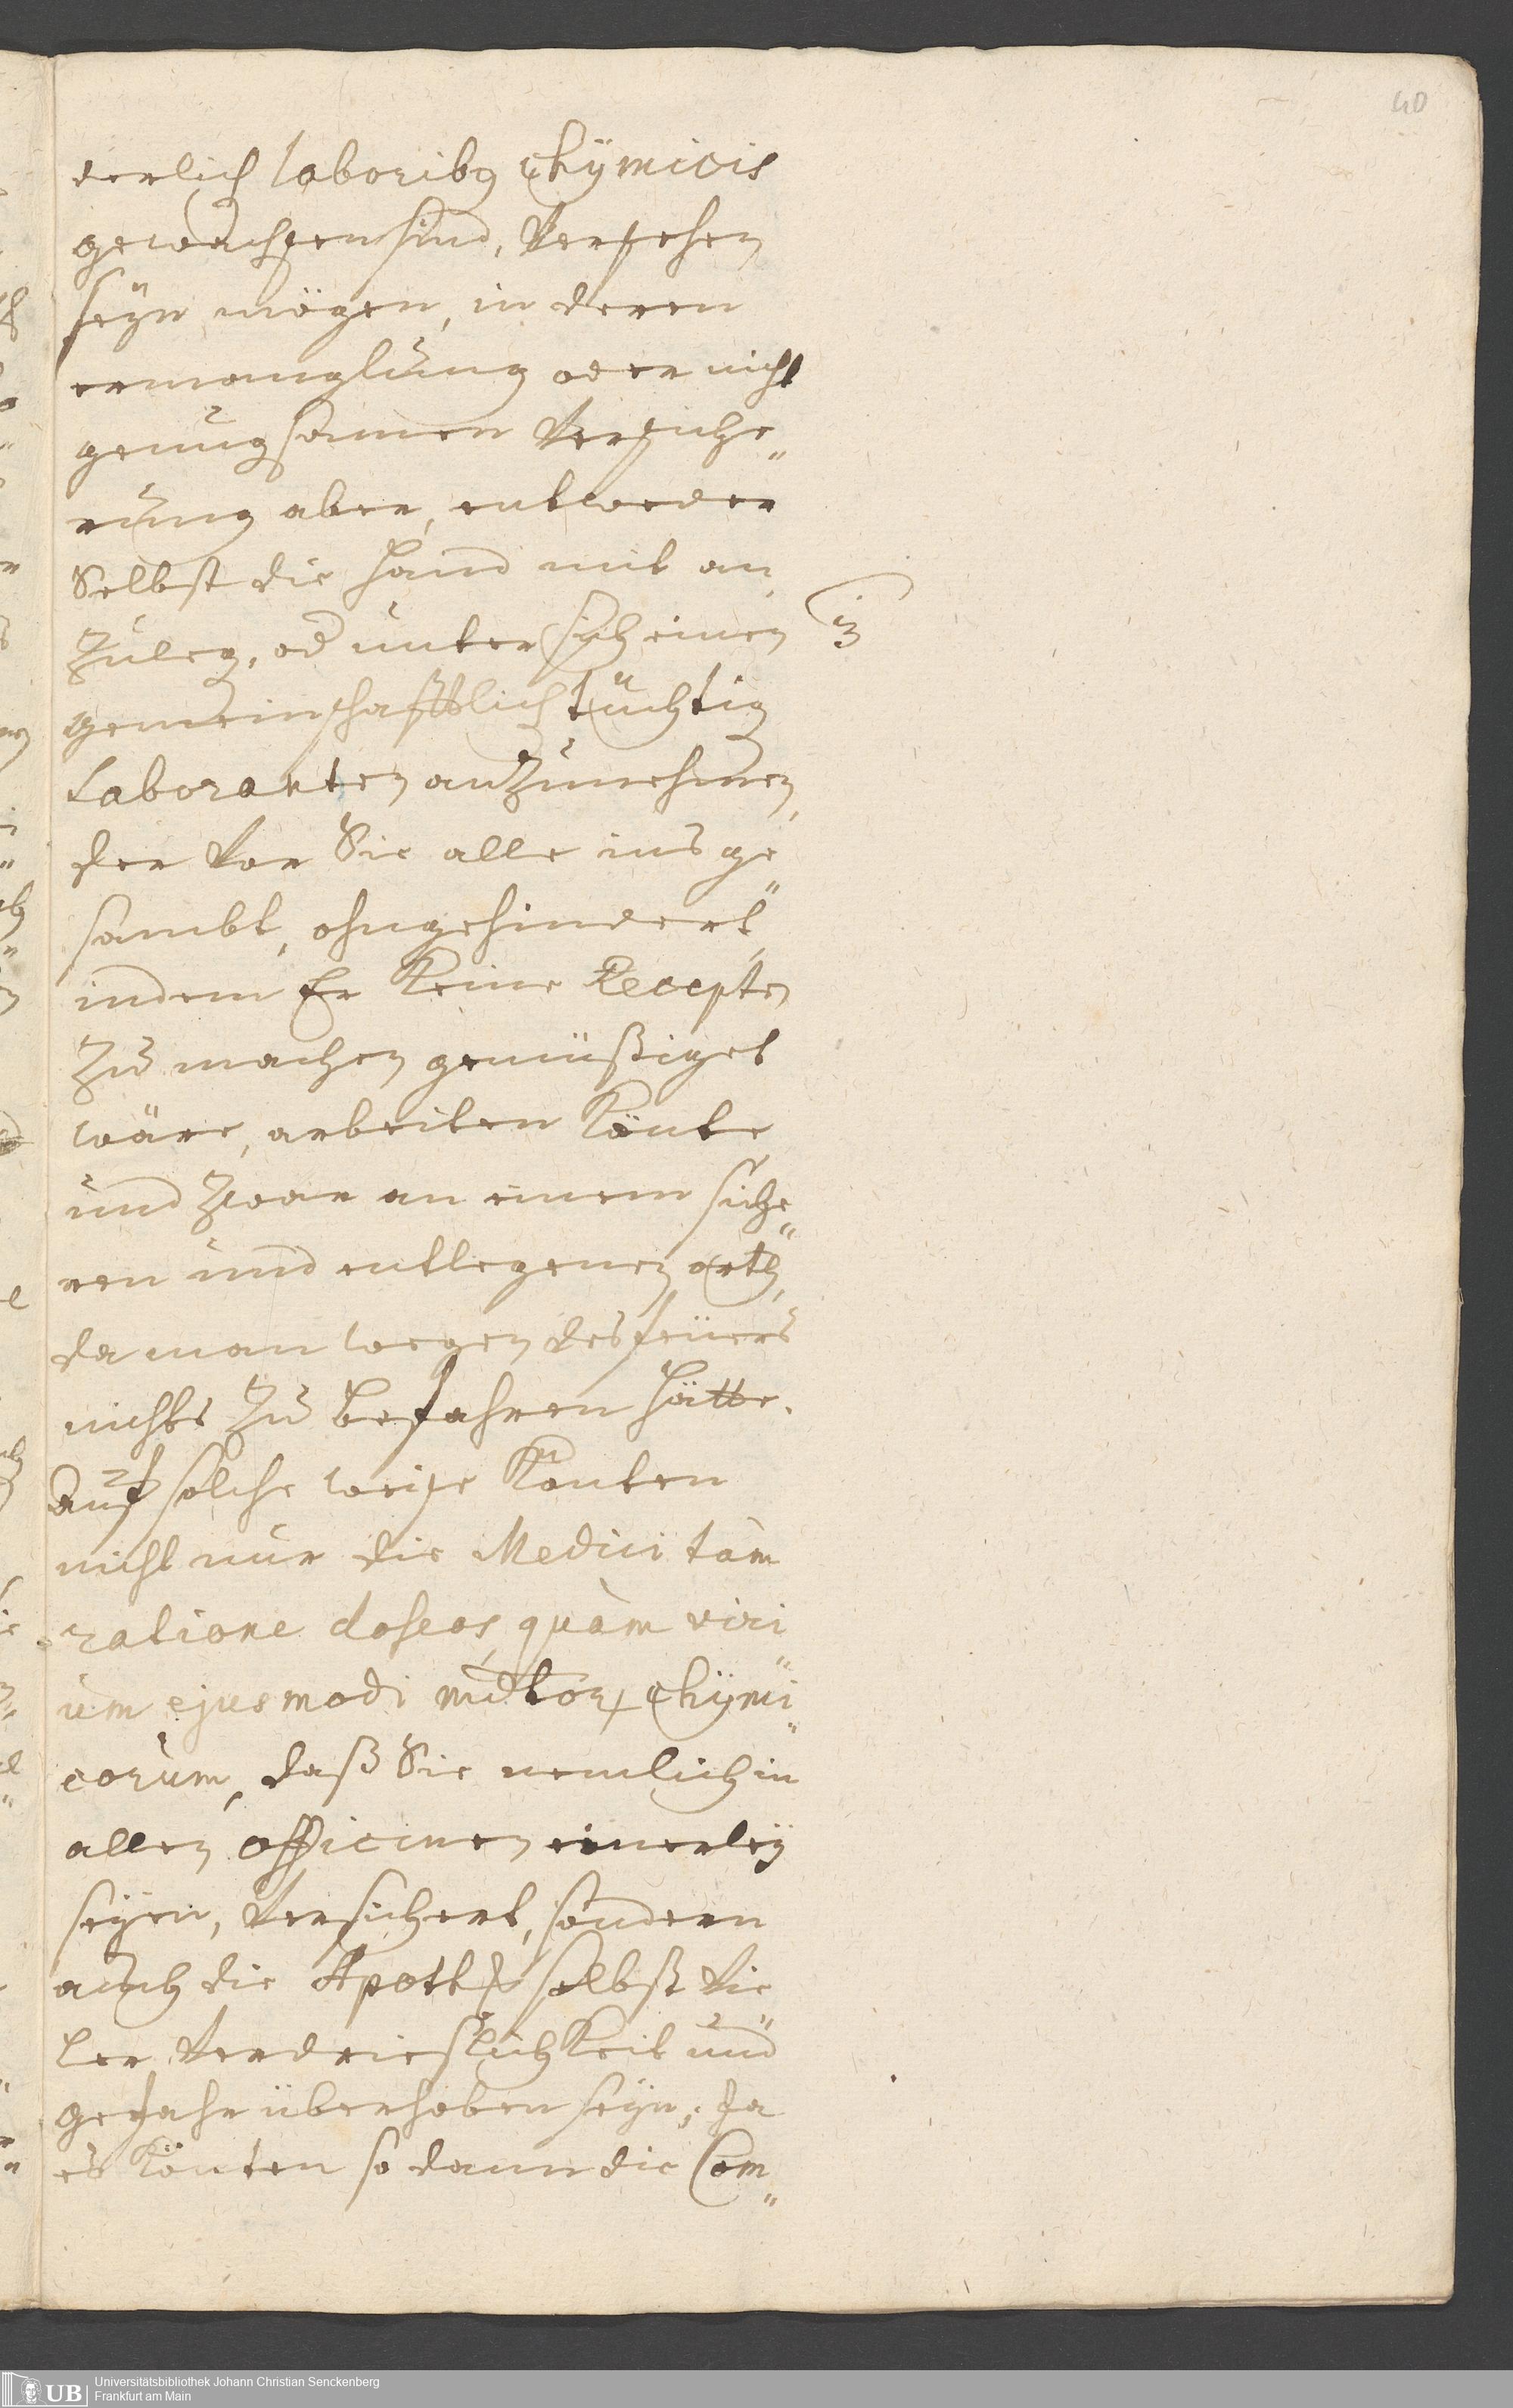 40
derlich laboribꝰ chÿmicis
gewachsen sind, versehen
seÿn mögen, in deren
ermanglung oder nicht
genugsamen Versiche„
rung aber, entweder
Selbst die Hand mit an„
Zuleg, od unter sich einen
gemeinschafftlich tüchtig
Laboranten anzunehmen,
der vor Sie alle ins ge„
sambt, ohngehindert,
indem Er Keine Recepten
Zu machen gemüßiget
wäre, arbeiten Könte
und Zwar an einem siche„
ren und entlegenen orth,
da man wegen des feüers
nichts Zu befahren hätte.
Auf solche weise Könten
nicht nur die Medici tàm
ratione doseos, quàm viri„
um ejusmodi mdtor chÿmi„
corum, daß Sie nemlich in
allen officinen einerleÿ
seÿen, versichert, sondern
auch die Apothk selbst vie„
ler Verdrießlichkeit und
gefahr überhoben seÿn; Ja
es Könten so dann die Com„
Universitätsbibliothek Johann Christian Senckenberg
Frankfurt am Main
UB